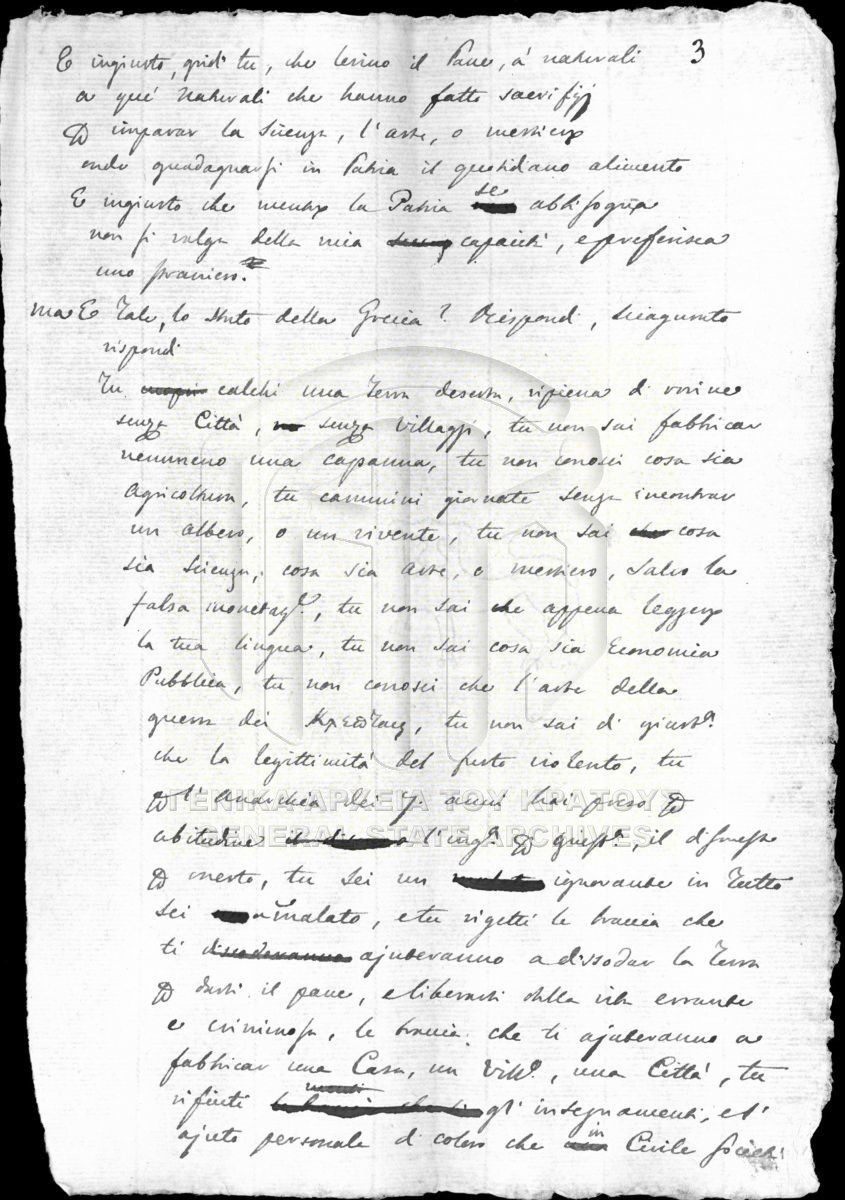 3
E ingiusto, gridi tu, che levino il Pane, a' naturali
a que' naturali che hanno fatto sacrifizj
imparar la scienza, l'arte, o mestiere
onde guadagnarsi in Patria il quotidiano alimento
E ingiusto che mentre la Patria se abbisogna
non si valga della mia capacità, e preferisca
uno straniero.
ma E tale, lo stato della Grecia? Rispondi, sciagurato
rispondi
Tu calchi una Terra deserta, ripiena di rovine
senza Città, senza Villaggi, tu non sai fabbricar
nemmeno una capanna, tu non conosci cosa sia
Agricoltura, tu cammini giornate senza incontrar
un albero, o un vivente, tu non sai cosa
sia scienza, cosa sia arte, o mestiero, salvo la
falsa monetaz.e, tu non sai che appena leggere
la tua lingua, tu non sai cosa sia Economia
Pubblica, tu non conosci che l'arte della
guerra dei, tu non sai di giust.o
che la legittimità del furto violento, tu
l'anarchia dei 7 anni hai preso
abitudine l'ing.o giusto, il disonesto
onesto, tu sei un ignorante in tutto
sei ammalato, e tu rigetti le braccia che
ti ajuteranno a dissodar la Terra
darti il pane, e liberarti dalla vita errante
e criminosa, le braccia che ti ajuteranno a
fabbricar una Casa, un Vill.o, una Città, tu
rifiuti gl'insegnamenti, e l'
ajuto personale di coloro che in Civile società
ΓΕΝΙΚΑ ΑΡΧΕΙΑ ΤΟΥ ΚΡΑΤΟΥΣ
GENERAL STATE ARCHIVES